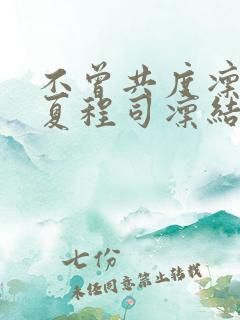 不曾共度凛
夏程司凛结
七份
未经同意禁止转载